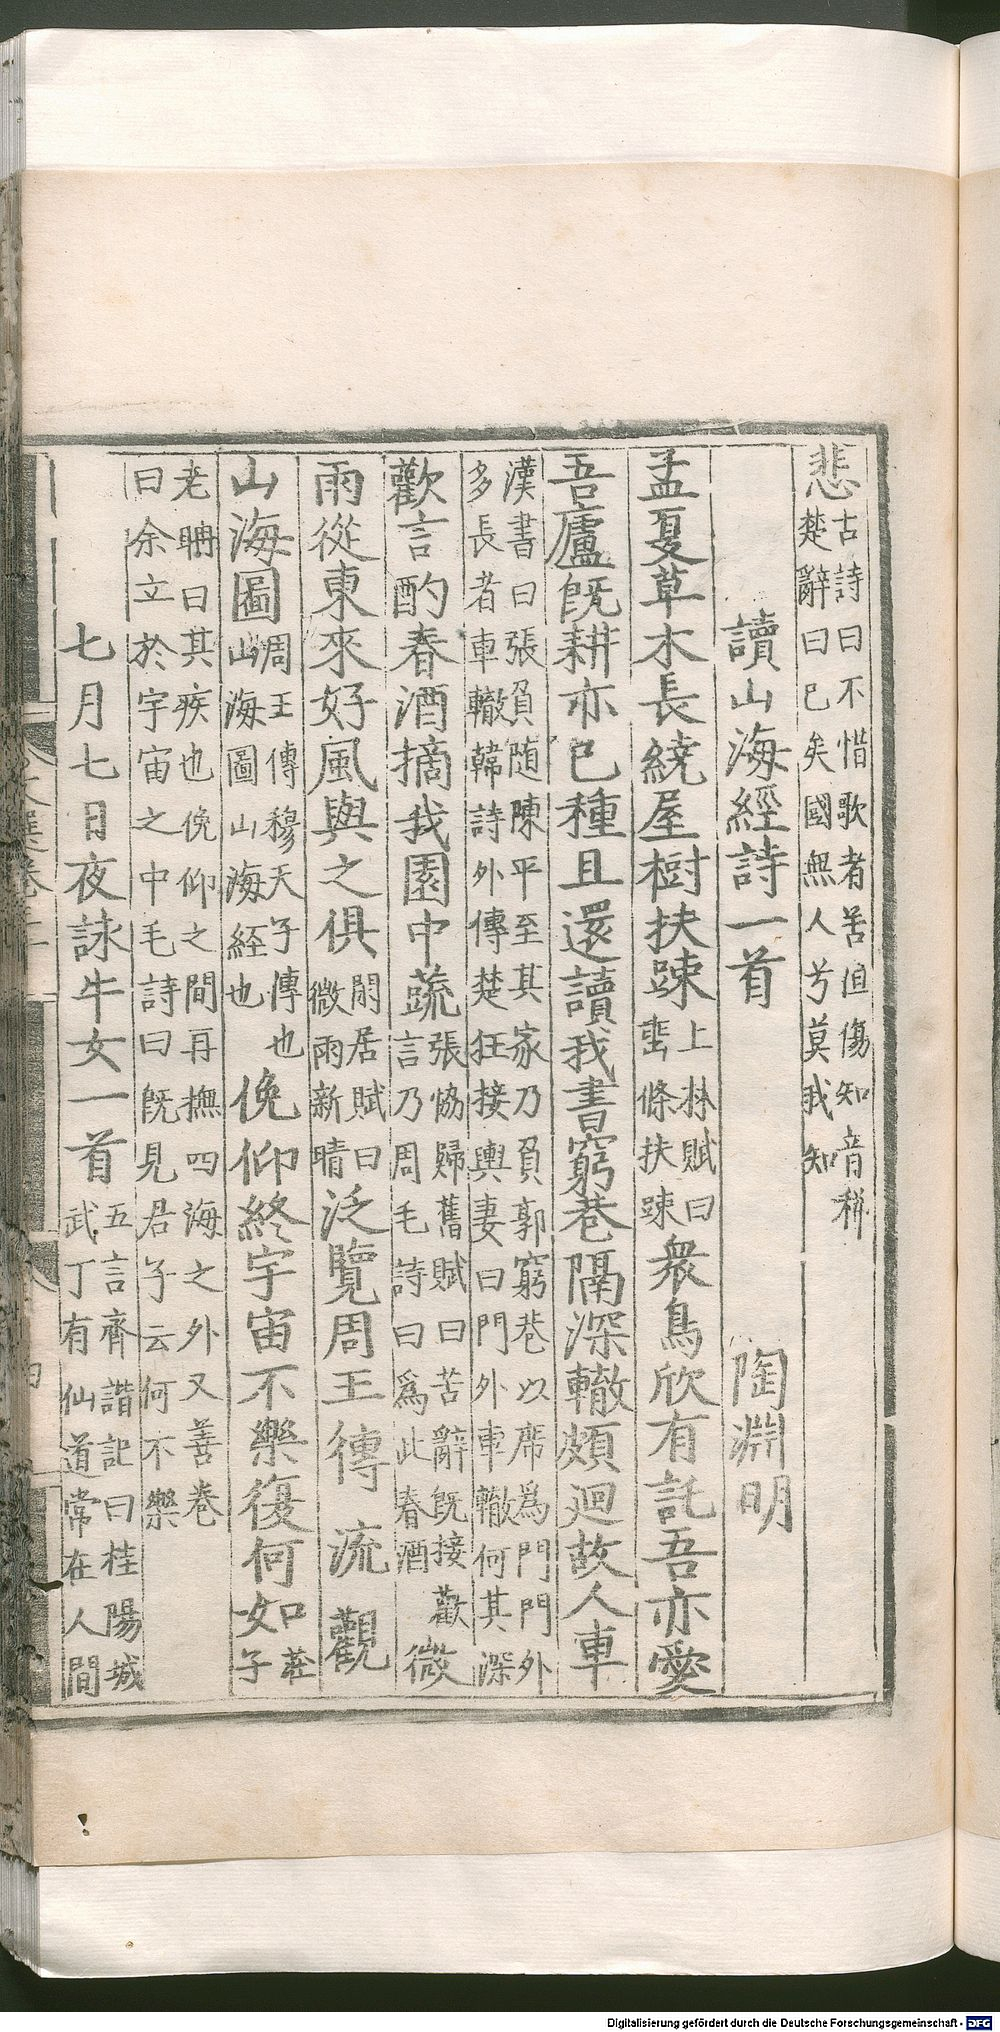 悲古詩曰不惜歌者苦但傷知音稀楚辭曰已矣國無人兮莫我知
讀山海經詩一首 陶淵明
孟夏草木長繞屋樹扶踈上林賦曰垂條扶踈衆鳥欣有託吾亦愛
吾廬旣耕亦已種且還讀我書窮巷隔深轍頗迴故人車
漢書曰張負随陳平至其家乃負郭窮巷以席爲門門外多長者車轍韓詩外傳楚狂接輿妻曰門外車轍何其深
歡言酌春酒摘我園中蔬張恊歸舊賦曰苦辭旣接歡言乃周毛詩曰爲此春酒微
雨從東來好風與之俱閑居賦曰微雨新晴泛覽周王傳流觀
山海圖周王傳穆天子傳也山海圖山海経也俛仰終宇宙不樂復何如莊子
老聃曰其疾也俛仰之間再撫四海之外又善卷曰余立於宇宙之中毛詩曰旣見君子云何不樂
七月七日夜詠牛女一首五言齊諧記曰桂陽城武丁有仙道常在人間
Digitalisierung gefördert durch die Deutsche Forschungsgemeinschaft - DFG